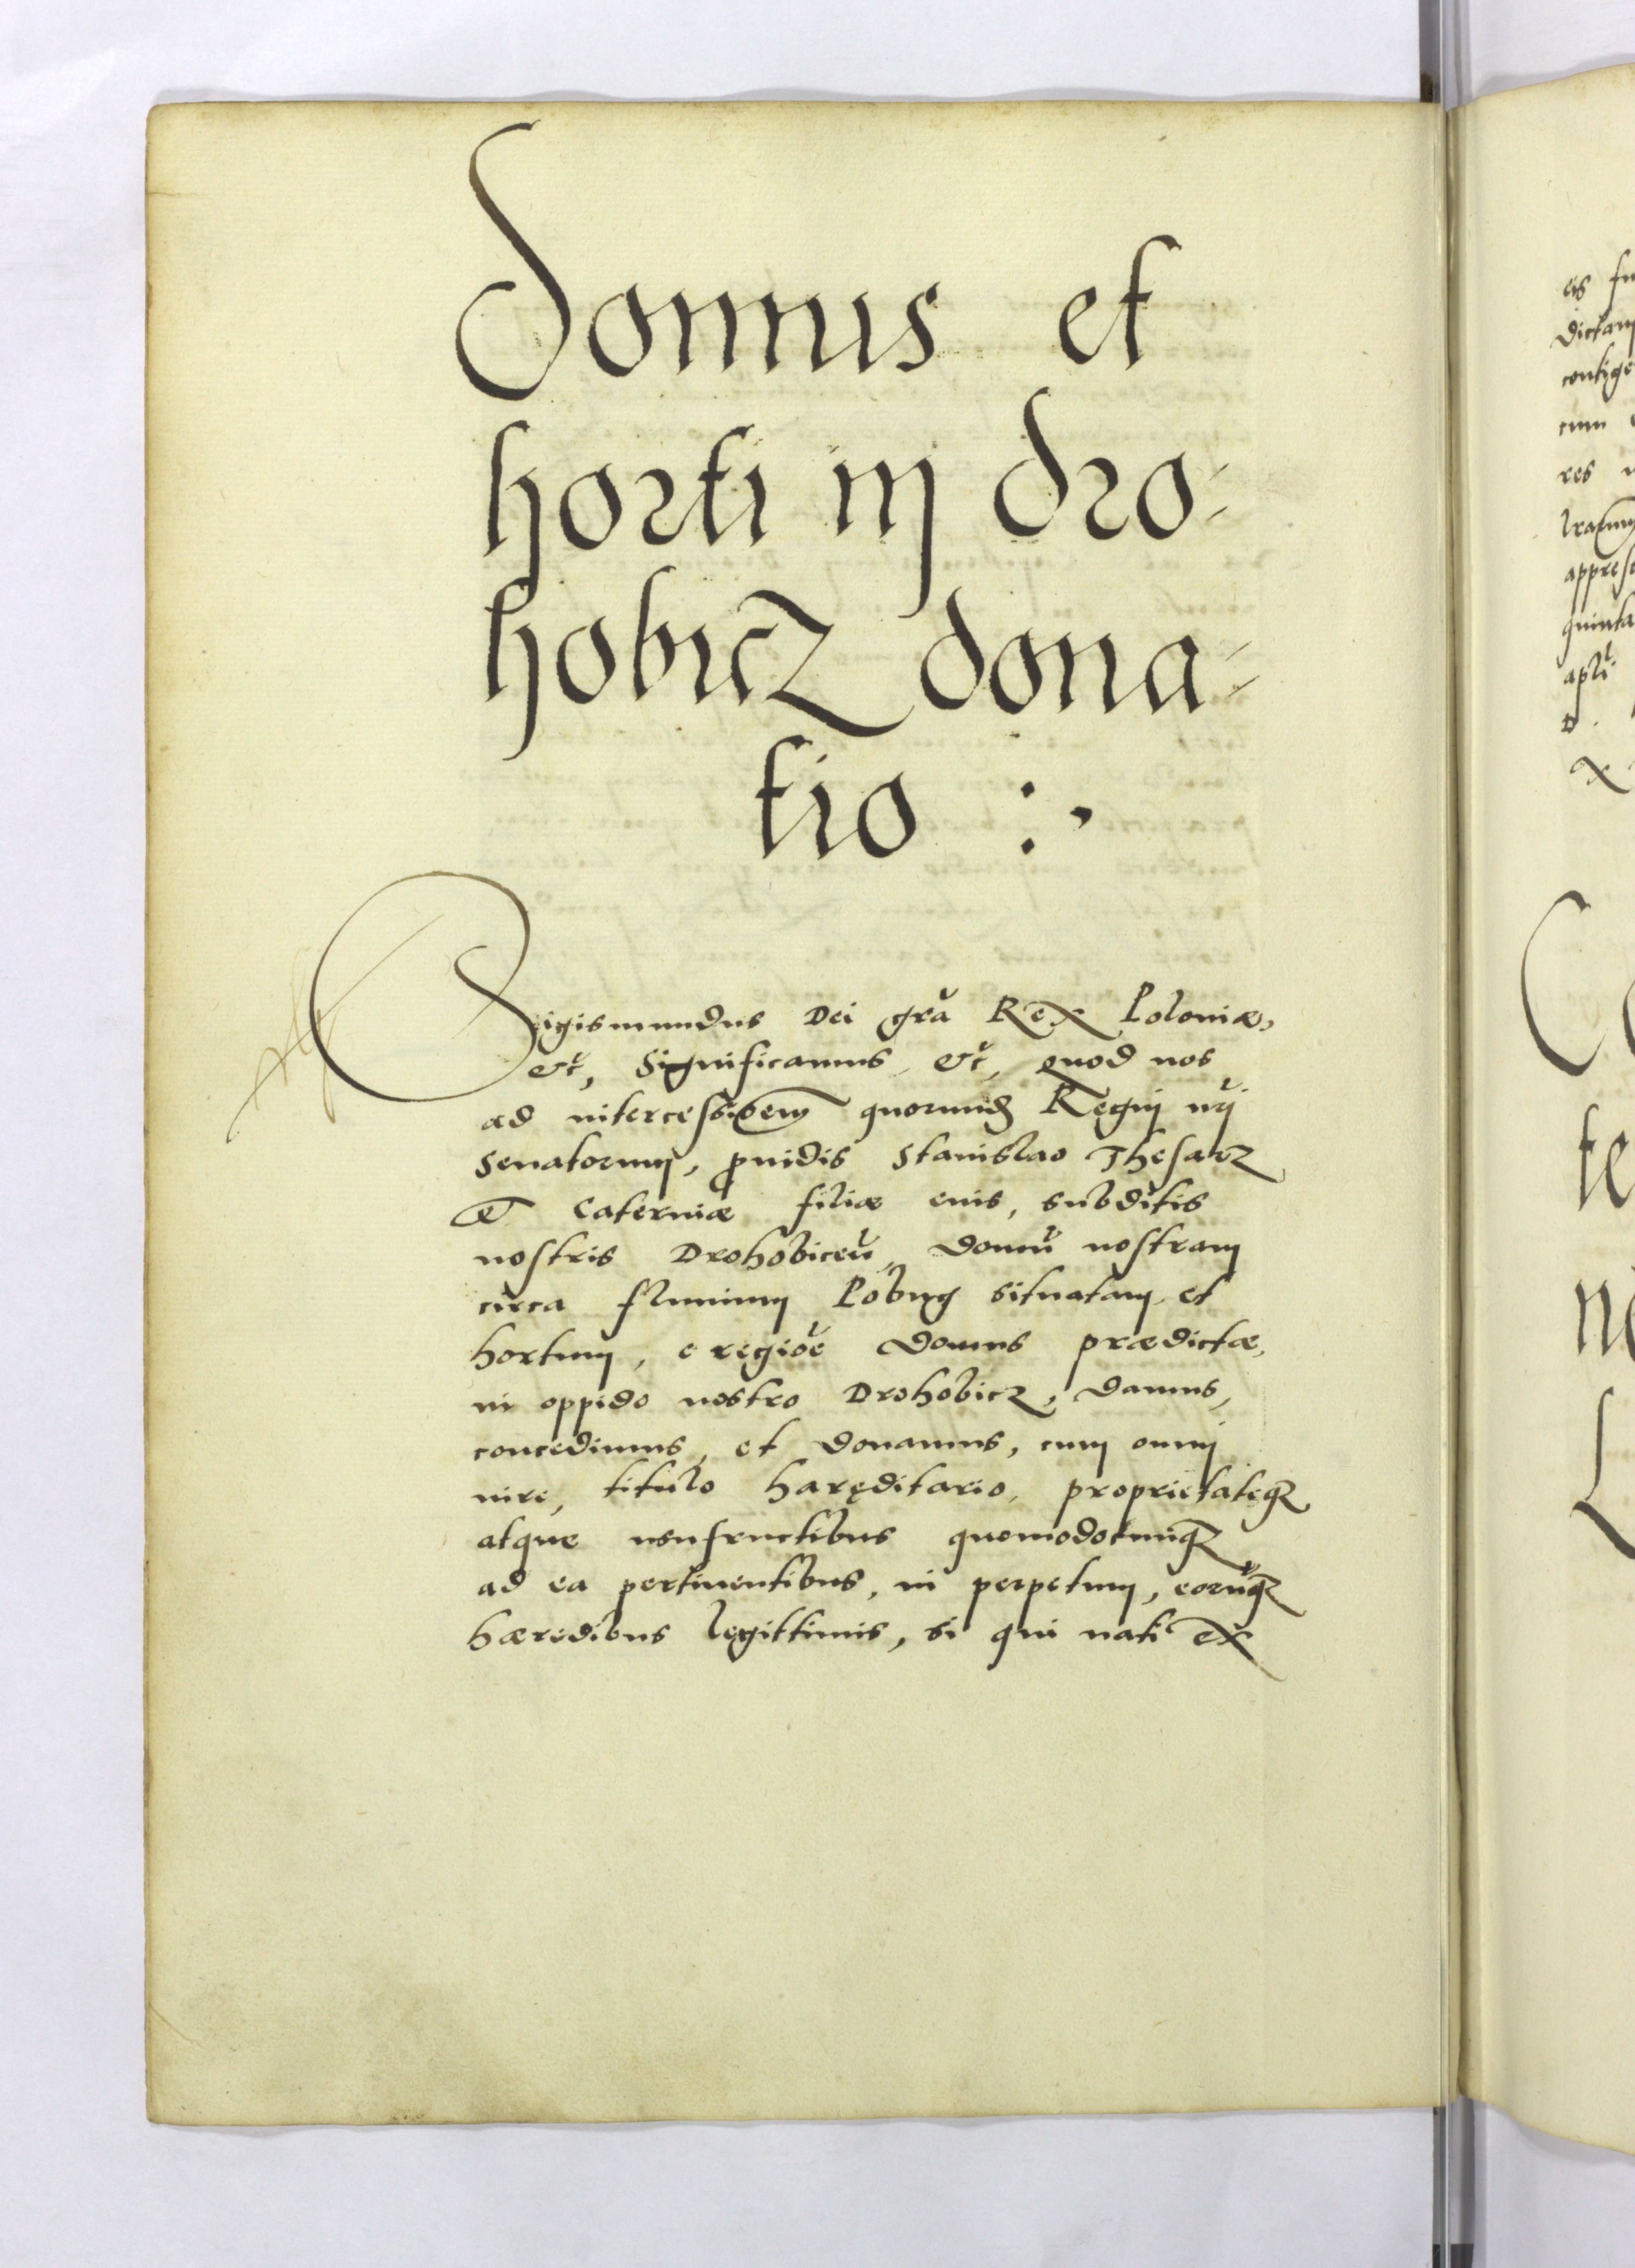 Domus et
horti in Dro-
hobicz dona-
tio :,
Sigismundus Dei gr̃a Rex Poloniæ,
etc̃, Significamus, etc̃, quod nos
ad intercessionem quorund. Regnj nrĩ
Senatorum, ꝓuidis Stanislao Thesarz
et Caterniæ filiæ eius, subditis
nostris Drohobiceñ, domũ nostram
circa fluuium Pobug situatam, et
hortum, e regiõe domus prædictæ,
in oppido nostro Drohobicz, damus,
concedimus, et donamus, cum omnj
iure, titulo haręditario, proprietateqꝫ
atque usufructibus quomodocunqꝫ
ad ea pertinentibus, in perpetuum, eorũqꝫ
hæredibus legittimis, si qui nati ex
eis
dictam
cum
res
quinta